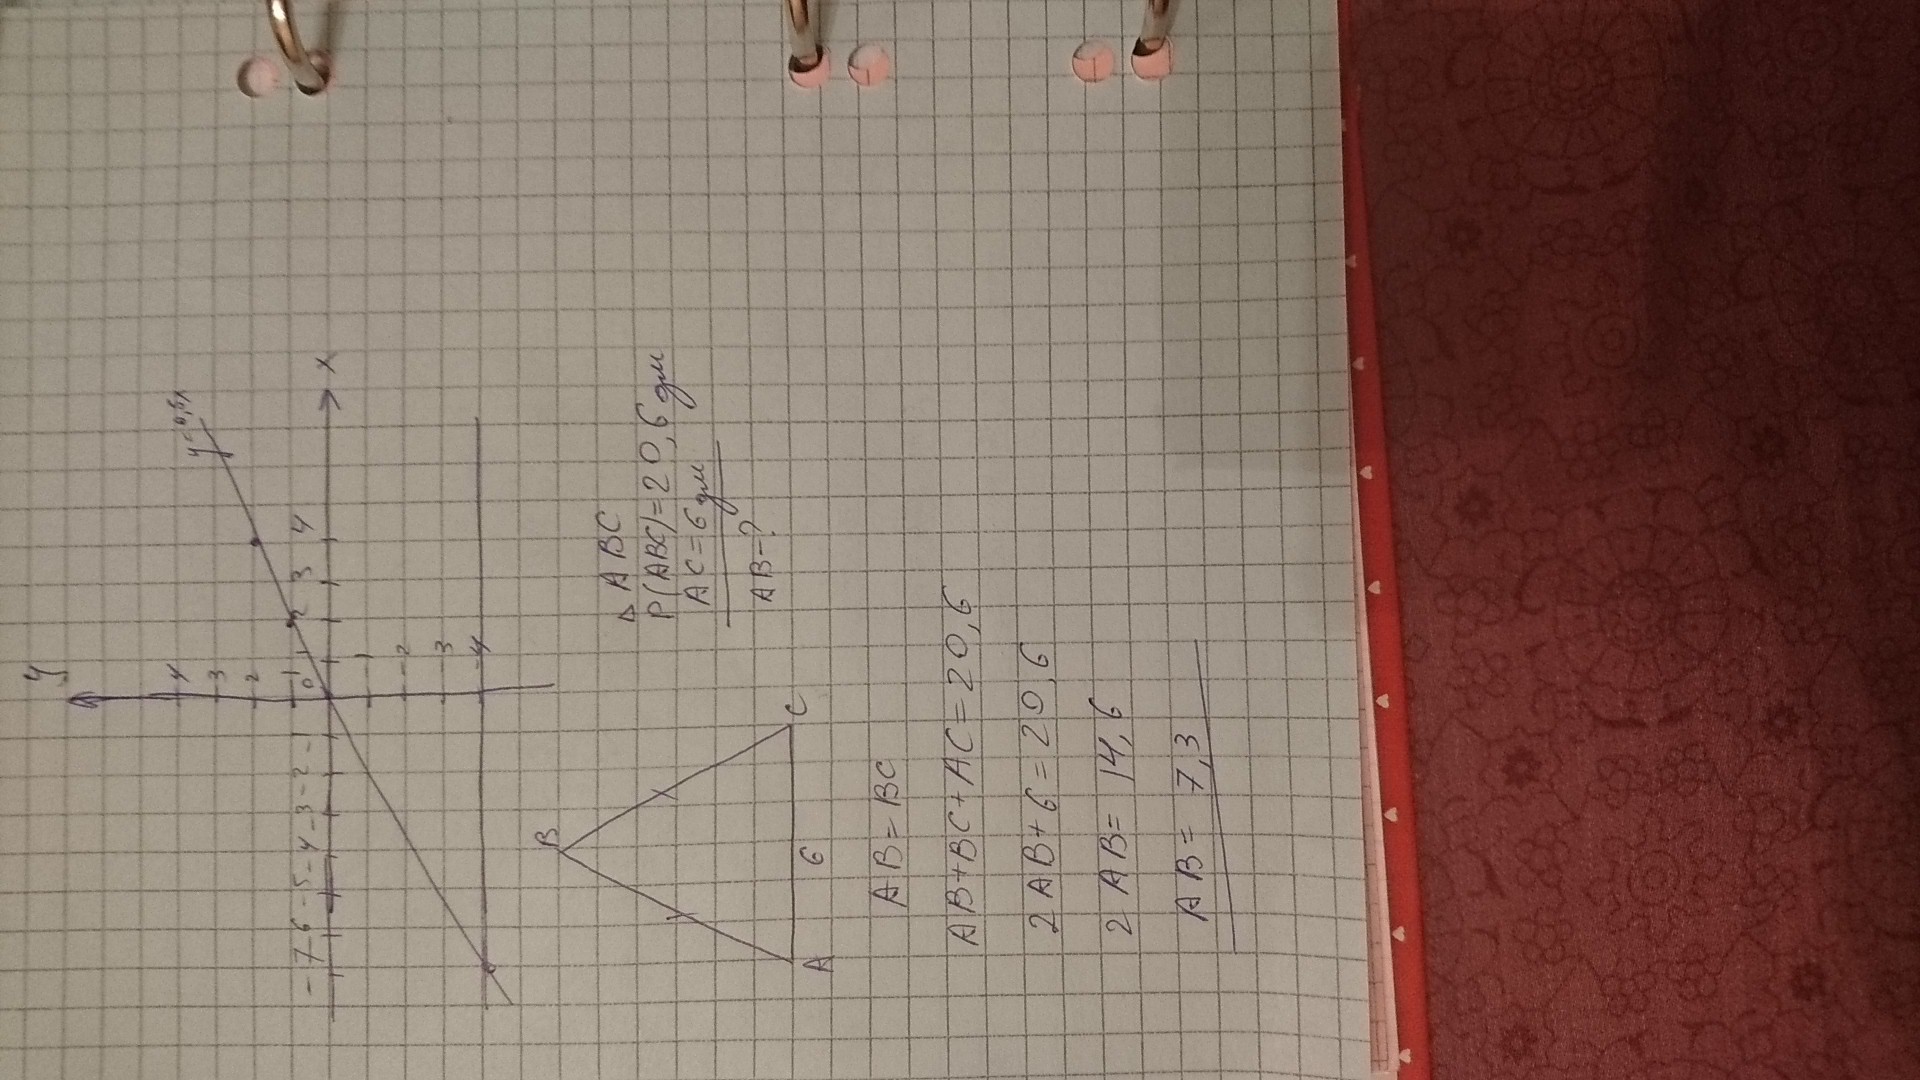 y
y=0,6x
4
3
2
1
0
-7 6 -5 -4 -3 -2 -1
1 2 3 4
x
1
-2
3
-4
Δ ABC
P(ABC)=20,6 дм
AC=6 дм
AB=?
B
A
6
C
AB=BC
AB+BC+AC=20,6
2AB+6=20,6
2AB=14,6
AB=7,3